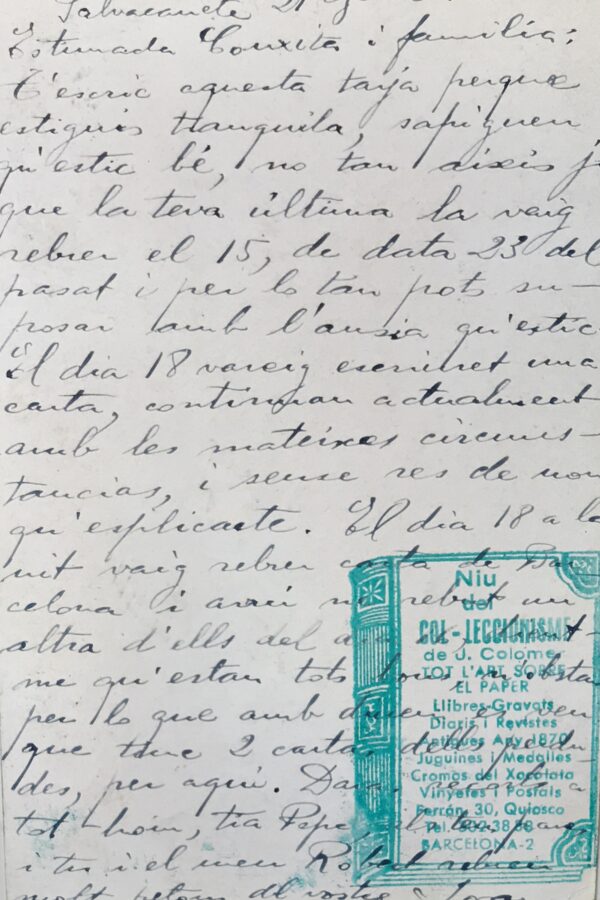 Salvacañete 21
Estimada Conxita i família:
T'escric aquesta tarja perque
estiguis tranquila, sapiguen
qu'estic bé, no tan aixis j
que la teva última la vaig
rebrer el 15, de data 23 del
pasat i per lo tan pots su-
posar amb l'ansia qu'estic
El dia 18 vareig escriuret una
carta, continuan actualment
amb les mateixes circuns-
tancias, i sense res de nou
qu'esplicarte. El dia 18 a la
nit vaig rebrer carta de Bar-
celona i avui rebut un
altra d'ells del
me qu'estan tots
per lo que amb
que tinc 2 cartas perdu-
des, per aqui.
tot-hom, tia Pepa,
i tu i el meu Robert rebeu
molt petons del vostre Joan
Niu
del
COL-LECCIONISME
de J. Colomer
TOT L'ART SOBRE
EL PAPER
Llibres-Gravats
Diaris i Revistes
Antigues Any 1870
Juguines i Medalles
Cromos del Xocolata
Vinyetes i Postals
Ferrán, 30, Quiosco
Tel.
BARCELONA-2